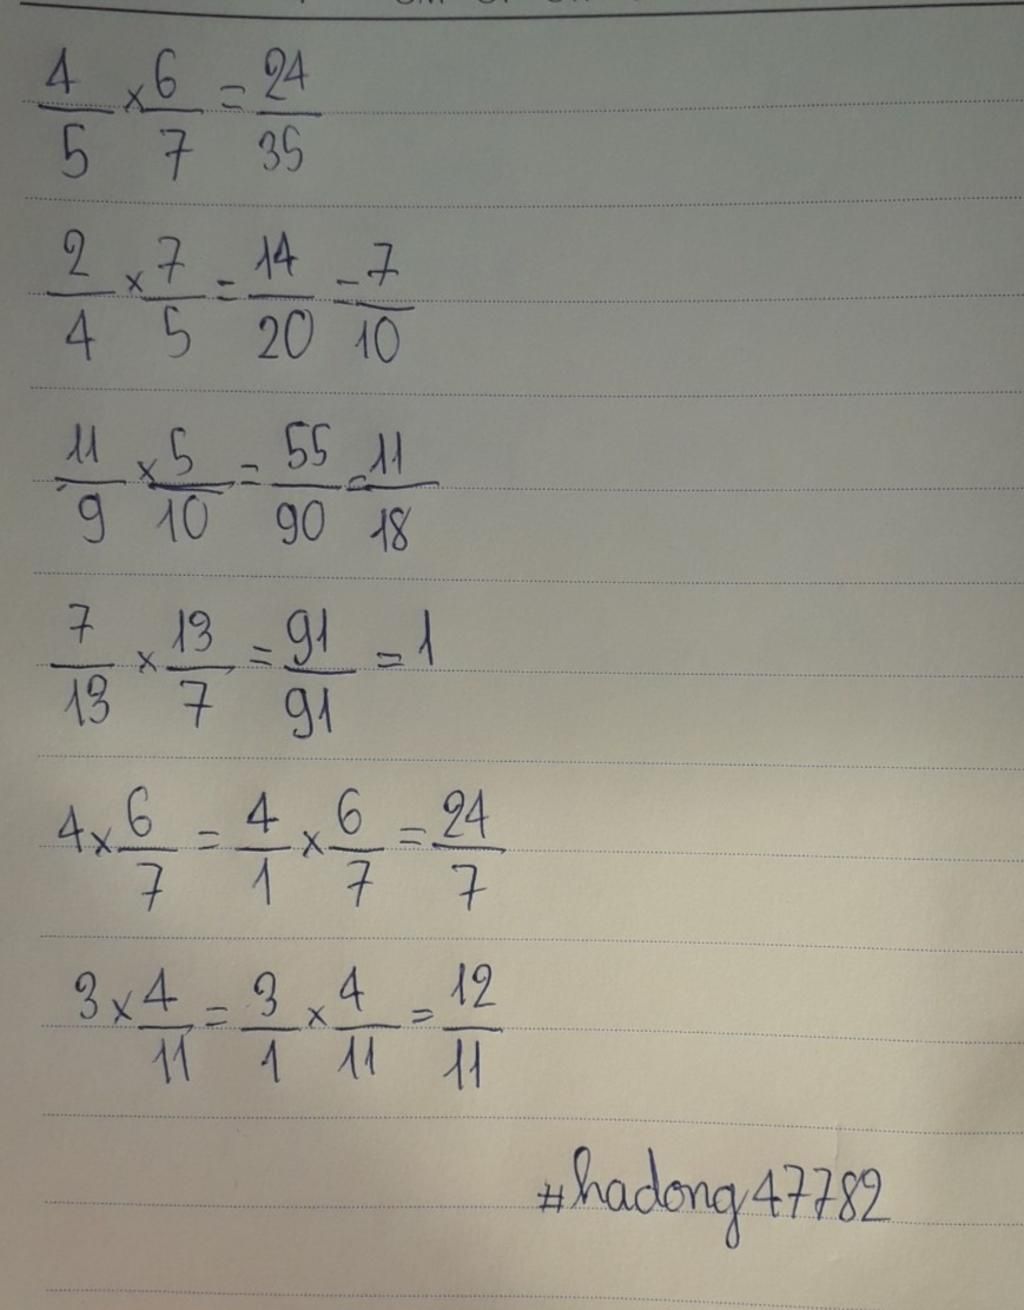 4/5 × 6/7 = 24/35
2/4 × 7/5 = 14/20 = 7/10
11/9 × 5/10 = 55/90 = 11/18
7/13 × 13/7 = 91/91 = 1
4 × 6/7 = 4/1 × 6/7 = 24/7
3 × 4/11 = 3/1 × 4/11 = 12/11
#hadong47782